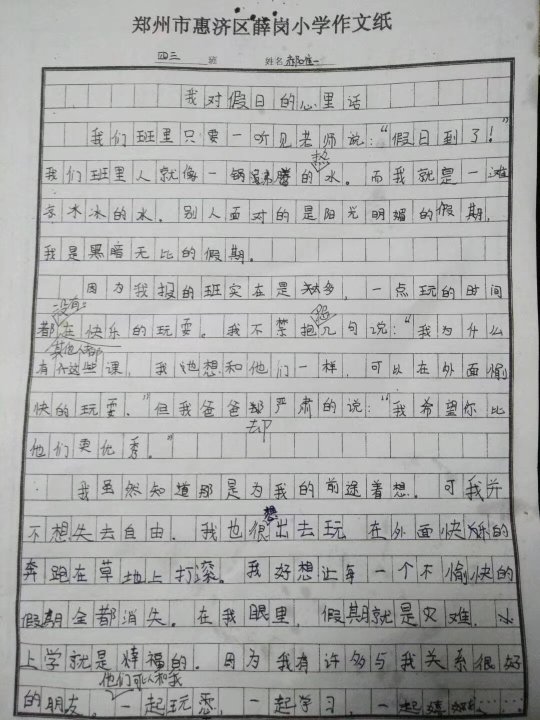 郑州市惠济区薛岗小学作文纸
四三 班 姓名
我对假日的心里话
我们班里只要一听见老师说：“假日到了！”
我们班里人就像一锅沸腾的热水。而我就是一滩
冰的水。别人面对的是阳光明媚的假期，
我是黑暗无比的假期。
因为我报的班实在是太多，一点玩的时间
都没有。
在快乐的玩耍。我不禁抱怨几句说：“我为什么
其他人都
有这些课，我也想和他们一样，可以在外面愉
快的玩耍。”但我爸爸却严肃的说：“我希望你比
他们更优秀。”
我虽然知道那是为我的前途着想。可我并
不想失去自由。我也很想出去玩 在外面快乐的
奔跑在草地上打滚。我好想让每一个不愉快的
假期全都消失。在我眼里，假期就是灾难，
上学就是幸福的。因为我有许多与我关系很好
的朋友。他们和我一起玩耍，一起学习，一起